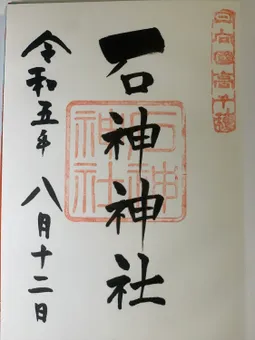 日向國高千穂
石神神社
石神
神社
令和五年 八月十二日